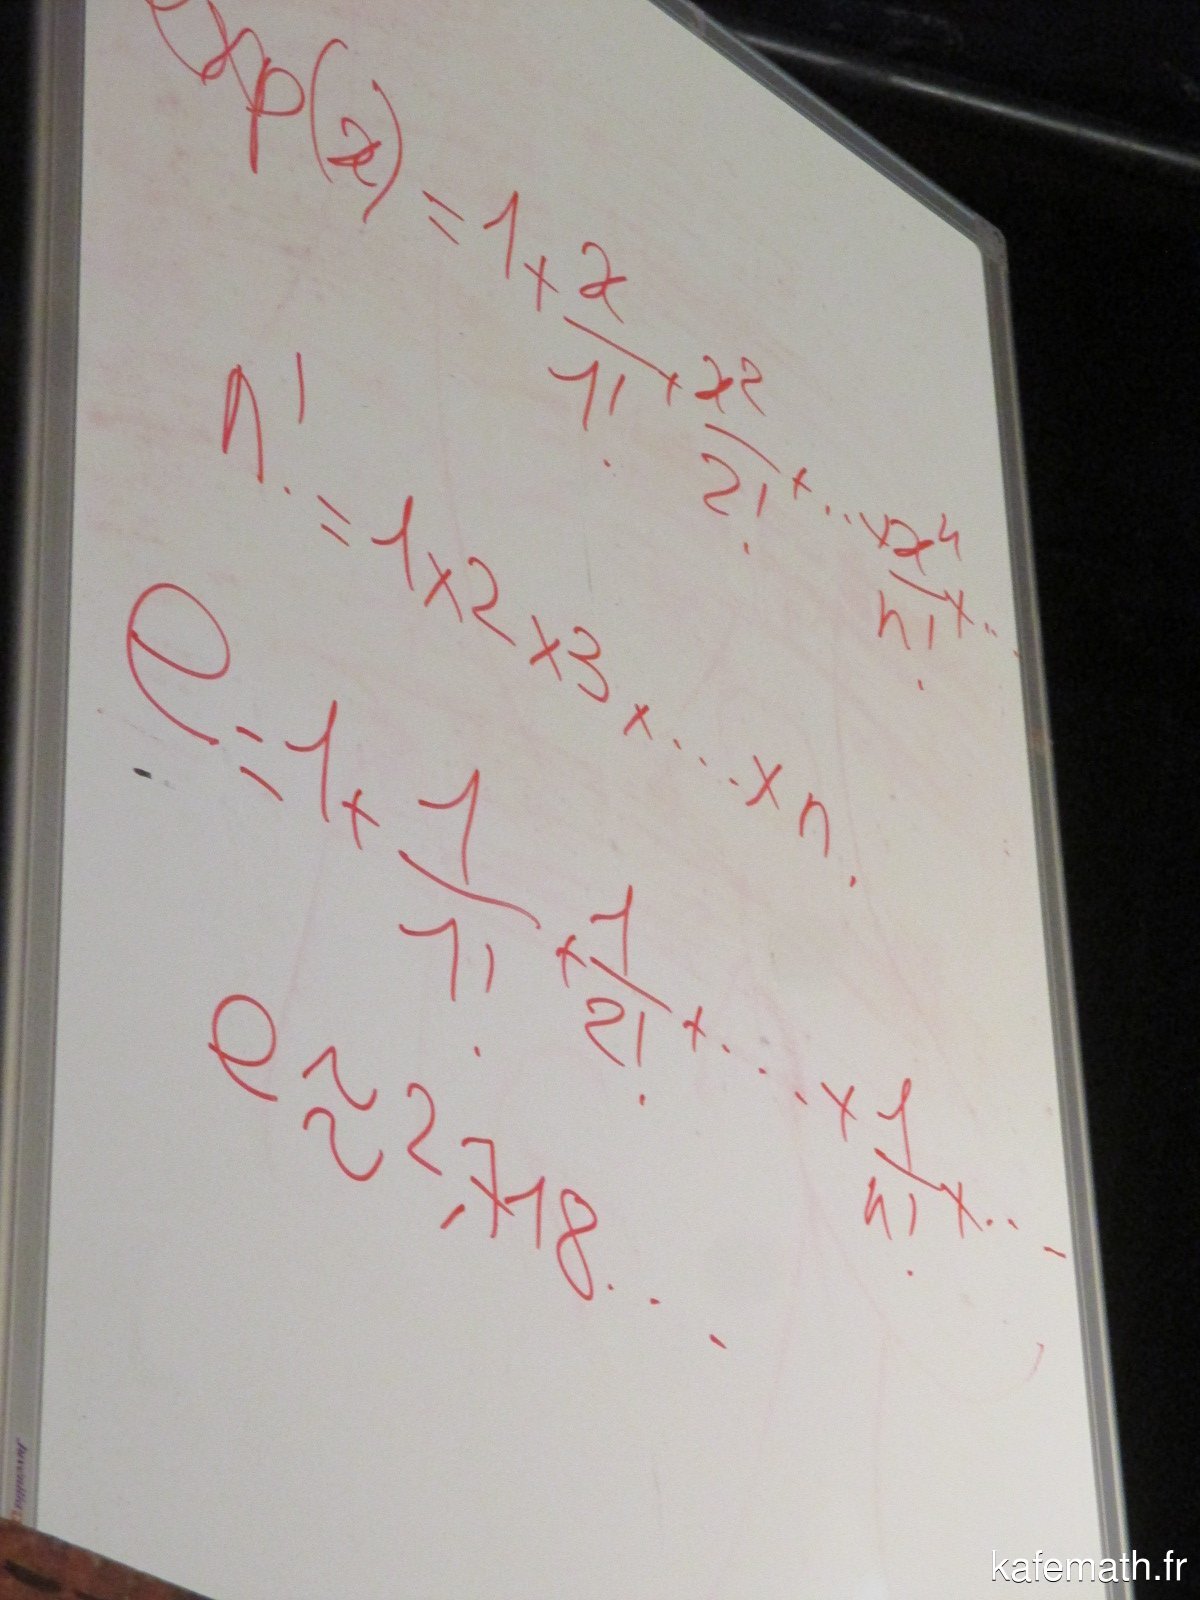 exp(x) = 1 + x/1! + x²/2! + ... + xⁿ/n! + ...
n! = 1 x 2 x 3 x ... x n.
e = 1 + 1/1! + 1/2! + ... + 1/n! + ...
e ≈ 2,718...
kafemath.fr